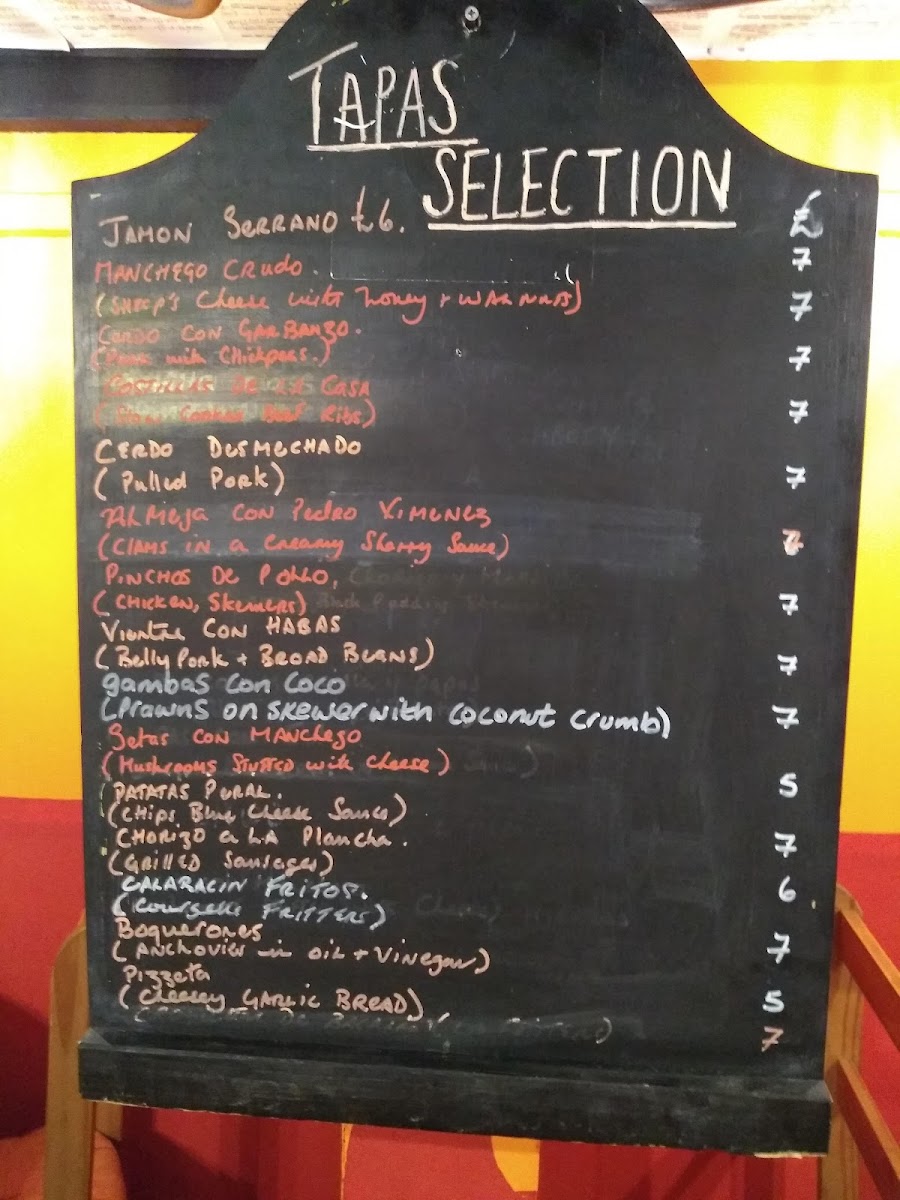 TAPAS
SELECTION
JAMON SERRANO £6. £
MANCHEGO CRUDO. 7
(SHEEP'S Cheese with honey + WALNUTS) 7
CERDO CON GARBANZO.
(Pork with Chickpeas.) 7
COSTILLAS DE LA CASA
(Slow Cooked Beef Ribs) 7
CERDO DESMECHADO
(Pulled Pork) 7
ALMEJA CON PEDRO XIMENEZ
(CLAMS in a creamy Sherry Sauce)
PINCHOS DE POLLO,
(CHICKEN, Skewers) 7
VIENTRE CON HABAS
(Belly Pork + BROAD BEANS) 7
gambas con coco
(Prawns on skewer with coconut crumb) 7
Setas CON MANCHEGO
(Mushrooms STUFFED with cheese)
PATATAS PURAL. 5
(CHIPS Blue Cheese Sauce)
CHORIZO a LA Plancha. 7
(GRILLED Sausages)
CALARACIN FRITOS. 6
(Courgette FRITTERS)
Boquerones
(ANCHOVIES in oil + Vinegar) 7
Pizzeta
(Cheesey GARLIC BREAD) 5
7